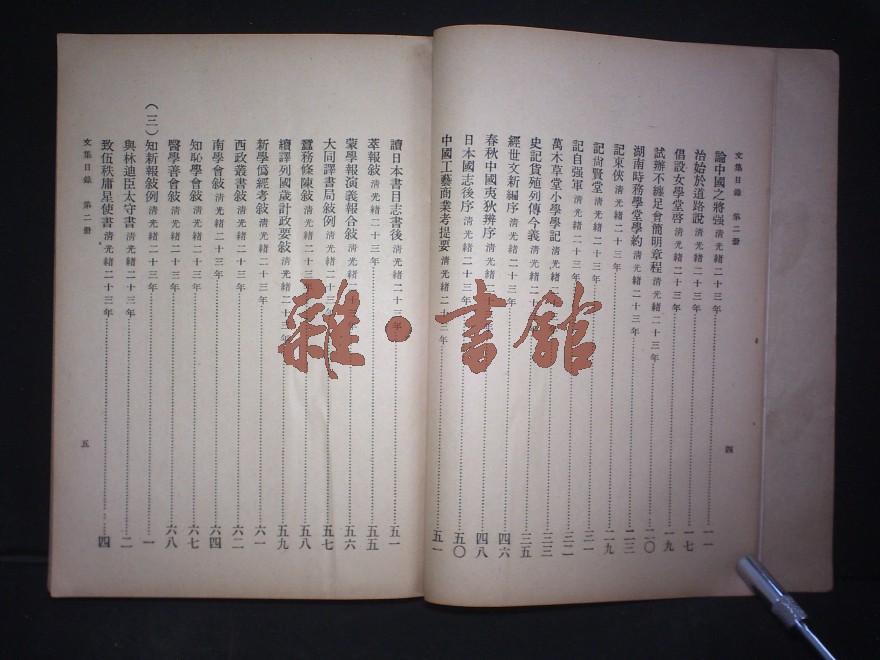 文集目錄 第二冊
論中國之將强 清光緒二十三年 一一
治始於道路說 清光緒二十三年 一七
倡設女學堂啓 清光緒二十三年 一九
試辦不纏足會簡明章程 清光緒二十三年 二〇
湖南時務學堂學約 清光緒二十三年 二三
記東俠 清光緒二十三年 二九
記尙賢堂 清光緒二十三年 三一
記自强軍 清光緒二十三年 三二
萬木草堂小學學記 清光緒二十三年 三三
史記貨殖列傳今義 清光緒二十三年 三五
經世文新編序 清光緒二十三年 四六
春秋中國夷狄辨序 清光緒二十三年 四八
日本國志後序 清光緒二十三年 五〇
中國工藝商業考提要 清光緒二十三年 五一
四
讀日本書目志書後 清光緒二十三年 五一
萃報敍 清光緒二十三年 五五
蒙學報演義報合敍 清光緒二十三年 五六
大同譯書局敍例 清光緒二十三年 五七
蠶務條陳敍 清光緒二十三年 五八
續譯列國歲計政要敍 清光緒二十三年 五九
新學僞經考敍 清光緒二十三年 六一
西政叢書敍 清光緒二十三年 六二
南學會敍 清光緒二十三年 六四
知恥學會敍 清光緒二十三年 六七
醫學善會敍 清光緒二十三年 六八
(三)知新報敍例 清光緒二十三年 一
與林迪臣太守書 清光緒二十三年 二
致伍秩庸星使書 清光緒二十三年 四
文集目錄 第二冊
五
雜·書館